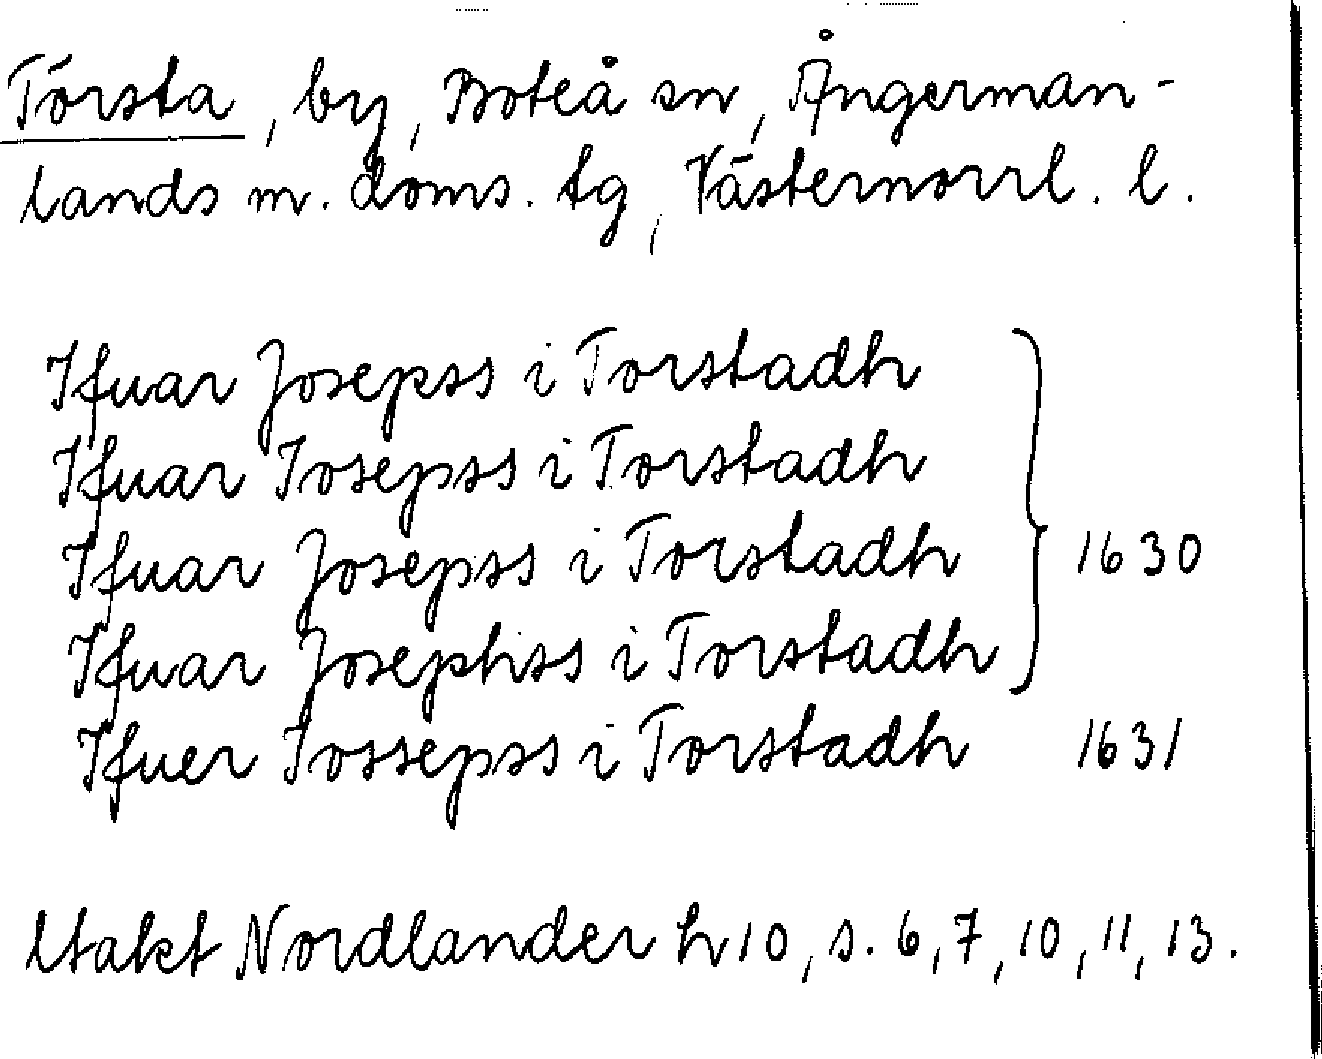 Tórsta, by, Boteå sn, Ångerman-
lands m. doms. tg, Västernorrl. l.
Ifuar Josepss i Torstadh
Ifuar Iosepss i Torstadh
Ifuar Josepss i Torstadh } 1630
Ifuar Josephss i Torstadh
Ifuer Iossepss i Torstadh 1631
Utakt Nordlander h 10, s. 6, 7, 10, 11, 13.